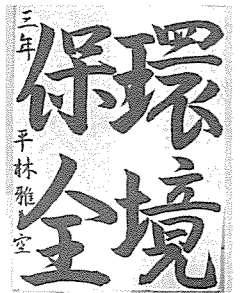 環境
保全
三年 平林雅空